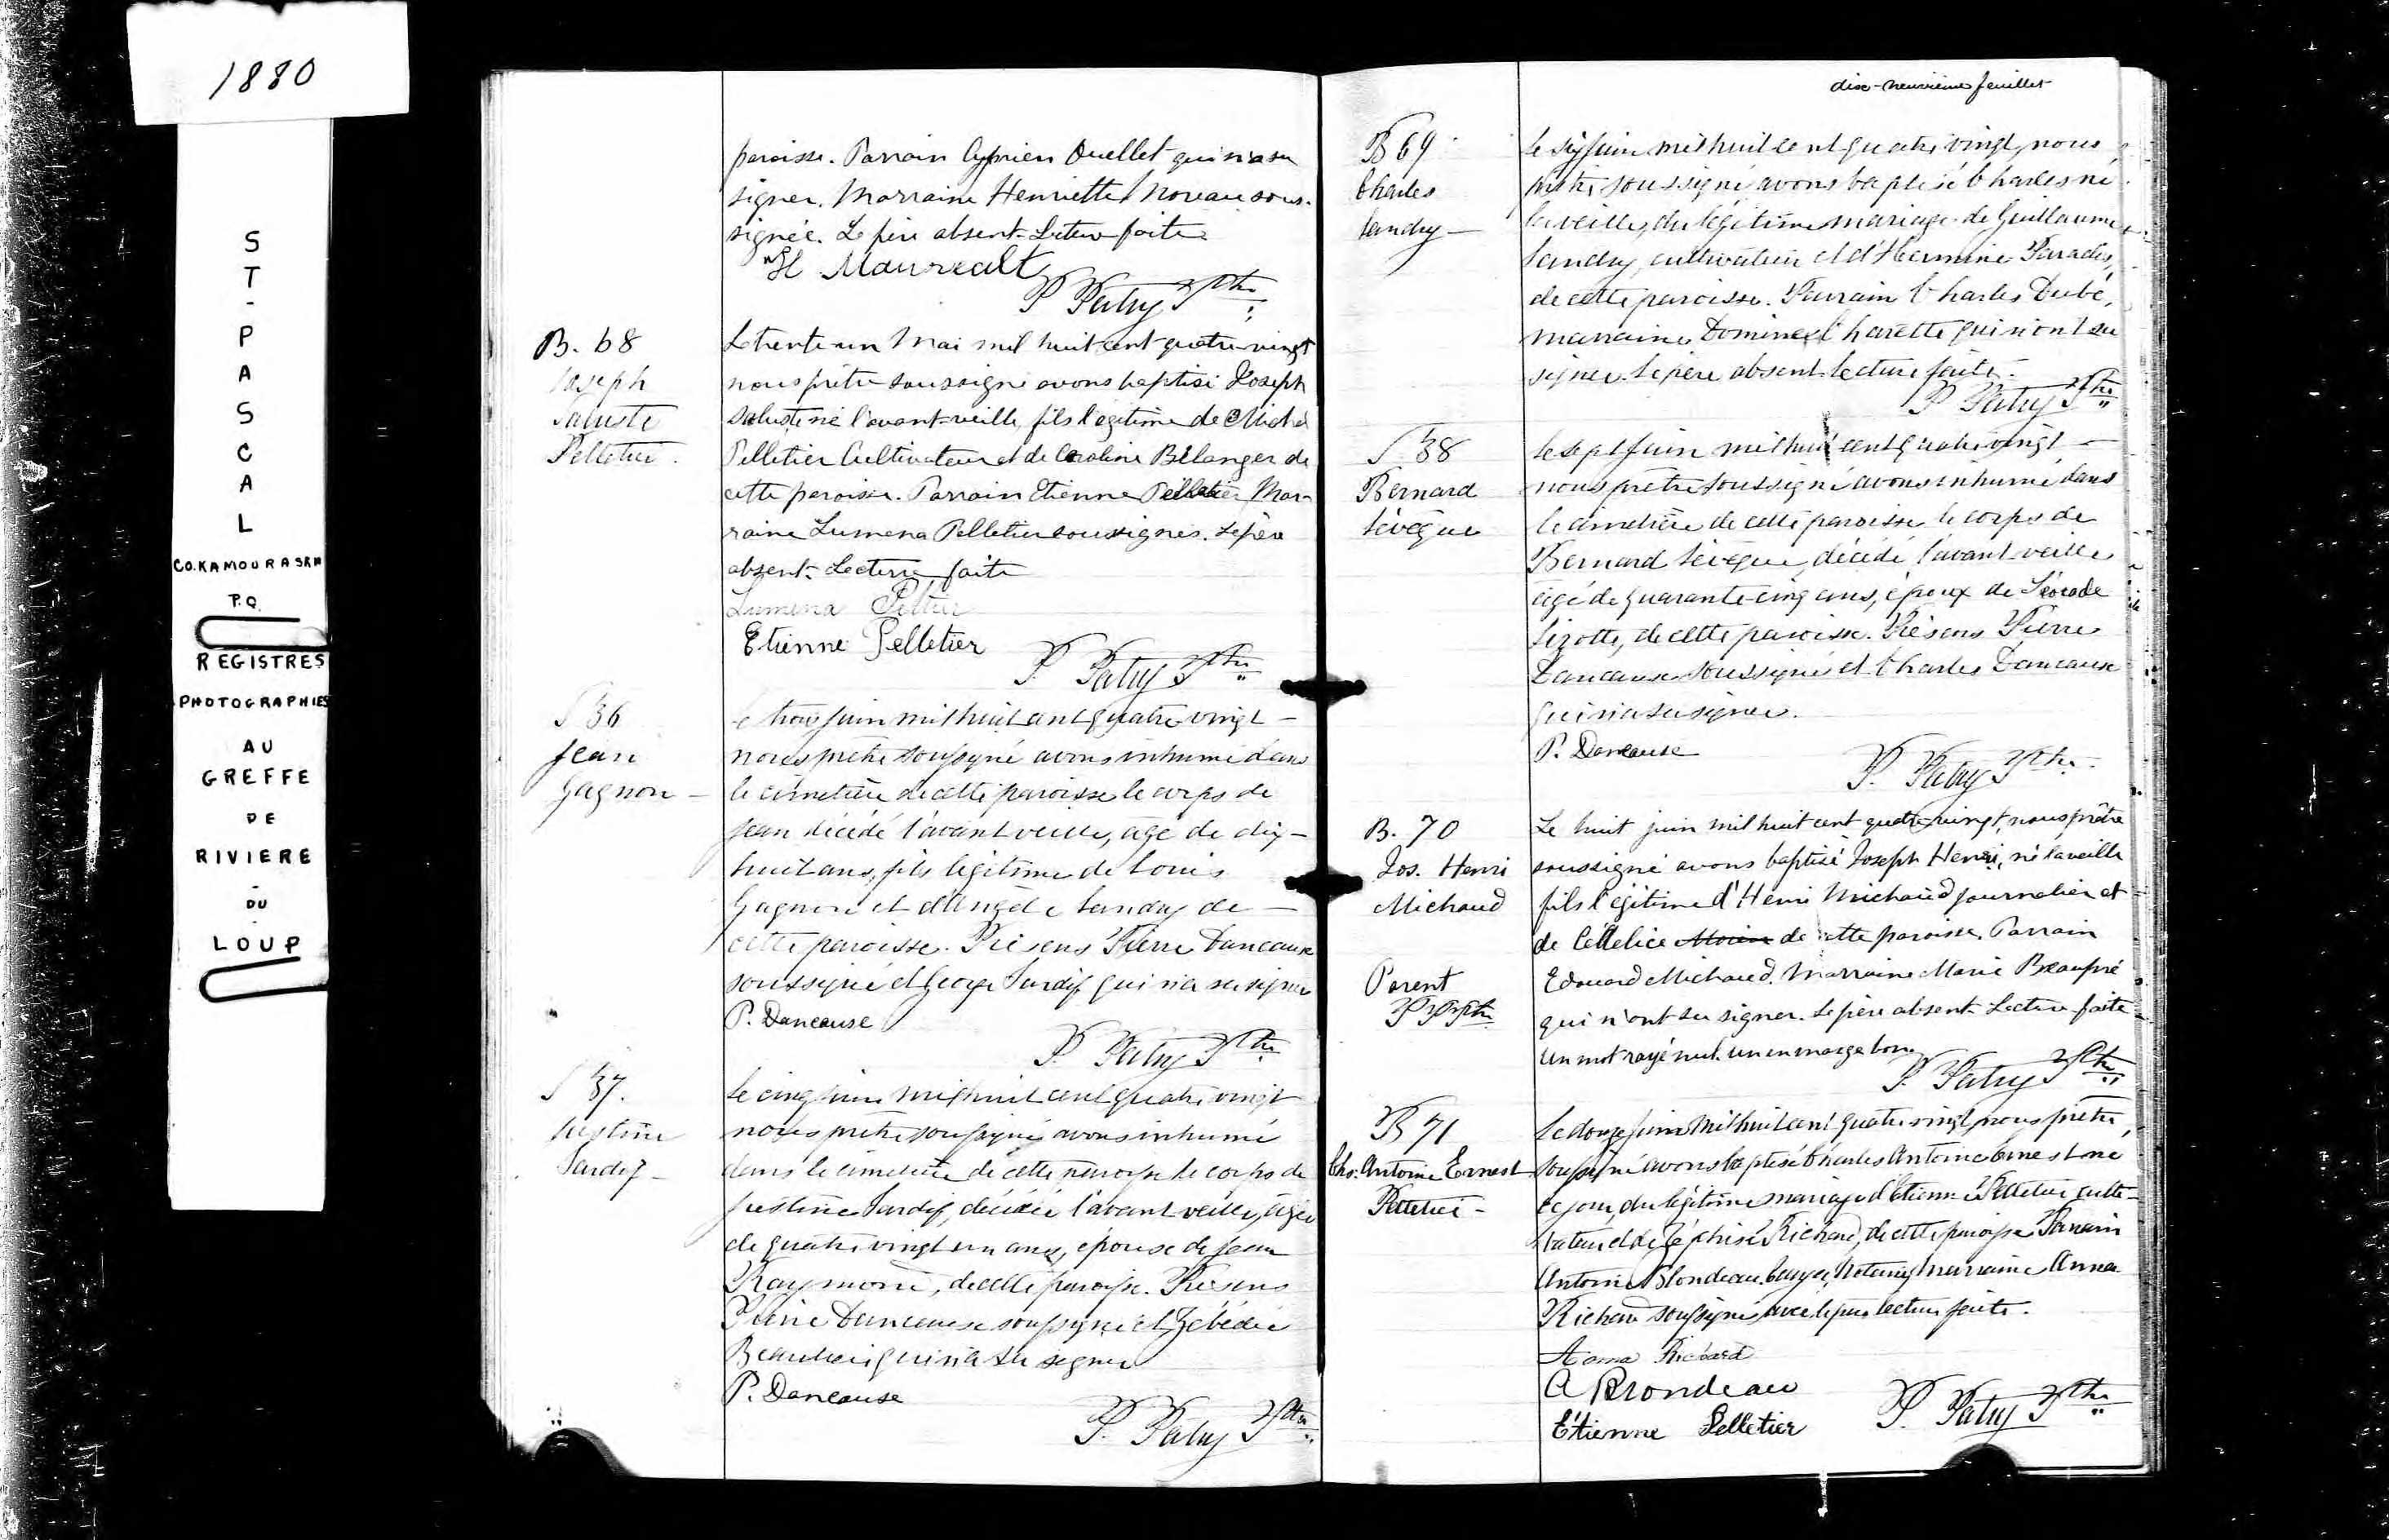 1880
ST-PASCAL
CO. KAMOURASKA
P.Q.
REGISTRES
PHOTOGRAPHIES
AU
GREFFE
DE
RIVIERE
-
DU
-
LOUP
paroisse. Parrain Cyprien Ouellet qui n'a su
signer. Marraine Henriette Moreau sous-
signée. Le père absent. Lecture faite
H Maureault
P Patry Ptre
B. 68
Joseph
Saluste
Pelletier.
Le trente-un Mai mil huit cent quatre-vingt
nous prêtre soussigné avons baptisé Joseph
Saluste né l'avant-veille, fils légitime de Michel
Pelletier Cultivateur et de Caroline Bélanger de
cette paroisse. Parrain Etienne Pelletier Mar-
raine Lumena Pelletier soussignés. Le père
absent. Lecture faite
Lumena Peltier
Etienne Pelletier
P. Patry Ptre
S 36
Jean
Gagnon -
Le trois juin mil huit cent quatre vingt -
nous prêtre soussigné avons inhumé dans
le cimetière de cette paroisse le corps de
Jean décédé l'avant veille, agé de dix-
huit ans, fils légitime de Louis
Gagnon et d'Angèle Landry de -
cette paroisse. Présens Pierre Dancause
soussigné et George Tardif qui n'a su signer
P. Dancause
P. Patry Ptre
S 37.
Justine
Tardif -
Le cinq juin mil huit cent quatre vingt
nous prêtre soussigné avons inhumé
dans le cimetière de cette paroisse le corps de
Justine Tardif, décédée l'avant veille, agée
de quatre vingt un ans, épouse de Jean
Raymond, de cette paroisse. Présens
Pierre Dancause soussigné et Zébédée
Beaulieu qui n'a su signer
P. Dancause
P. Patry Ptre
dix-neuvième feuillet
B 69
Charles
Landry -
Le six juin mil huit cent quatre vingt, nous
prêtre soussigné avons baptisé Charles né
la veille, du légitime mariage de Guillaume
Landry, cultivateur et d'Hermine Paradis,
de cette paroisse. Parrain Charles Dubé,
marraine Domine Charette qui n'ont su
signer. Le père absent. lecture faite.
P Patry Ptre
S 38
Bernard
Lévêque
Le sept juin mil huit cent quatre vingt -
nous prêtre soussigné avons inhumé dans
le cimetière de cette paroisse le corps de
Bernard Lévêque, décédé l'avant veille
agé de quarante-cinq ans, époux de Léocade
Lizotte, de cette paroisse. Présens Pierre
Dancause soussigné et Charles Dancause
qui n'a su signer.
P. Dancause
P. Patry Ptre
B. 70
Jos. Henri
Michaud
Parent
P P Ptre
Le huit juin mil huit cent quatre-vingt, nous prêtre
soussigné avons baptisé Joseph Henri, né la veille
fils légitime d'Henri Michaud journalier et
de de cette paroisse. Parrain
Edouard Michaud. Marraine Marie Beaupré
qui n'ont su signer. Le père absent. Lecture faite
Un mot rayé nul. un en marge bon.
P. Patry Ptre
B 71
Chs. Antoine Ernest
Pelletier -
Le douze juin mil huit cent quatre vingt, nous prêtre,
soussigné avons baptisé Charles Antoine Ernest né
ce jour, du légitime mariage d'Etienne Pelletier culti-
vateur et de Zéphise Richard, de cette paroisse Parrain
Antoine Blondeau Ecuyer, Notaire, marraine Anna
Richard soussignés avec le père lecture faite.
Anna Richard
A Blondeau
Étienne Pelletier
P. Patry Ptre